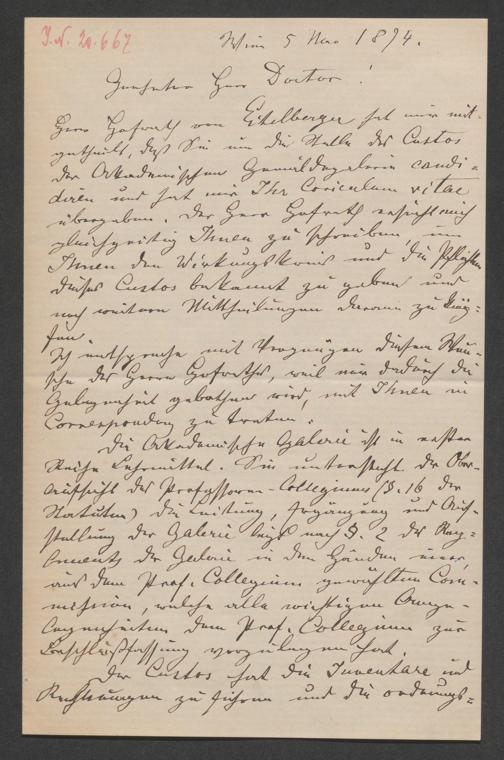 J.N. 20.667
Wien 5 März 1874.
Geehrter Herr Doctor!
Herr Hofrath von Eitelberger hat mir mit-
getheilt, daß Sie um die Stelle des Custos
der Akademischen Gemäldegalerie candi-
diren und hat mir Ihr Coriculum vitae
übergeben. Der Herr Hofrath ersucht mich
gleichzeitig Ihnen zu schreiben, um
Ihnen den Wirkungskreis und die Pflichten
dieses Custos bekannt zu geben und
noch weitere Mittheilungen daran zu knüp-
fen.
Ich entspreche mit Vergnügen diesem Wun-
sche des Herrn Hofrathes, weil mir dadurch die
Gelegenheit gebothen wird, mit Ihnen in
Correspondenz zu treten.
Die Akademische Galerie ist in erster
Reihe Lehrmittel. Sie untersteht der Ober-
aufsicht des Professoren-Collegiums (§. 16 der
Statuten) die Leitung, Ergänzung und Auf-
stellung der Galerie liegt nach §. 2 des Reg-
lements der Galerie in den Händen einer,
aus dem Prof. Collegium gewählten Com-
mission, welche alle wichtigen Ange-
legenheiten dem Prof. Collegium zur
Beschlußfassung vorzulegen hat.
Der Custos hat die Inventare und
Rechnungen zu führen und die ordnungs-